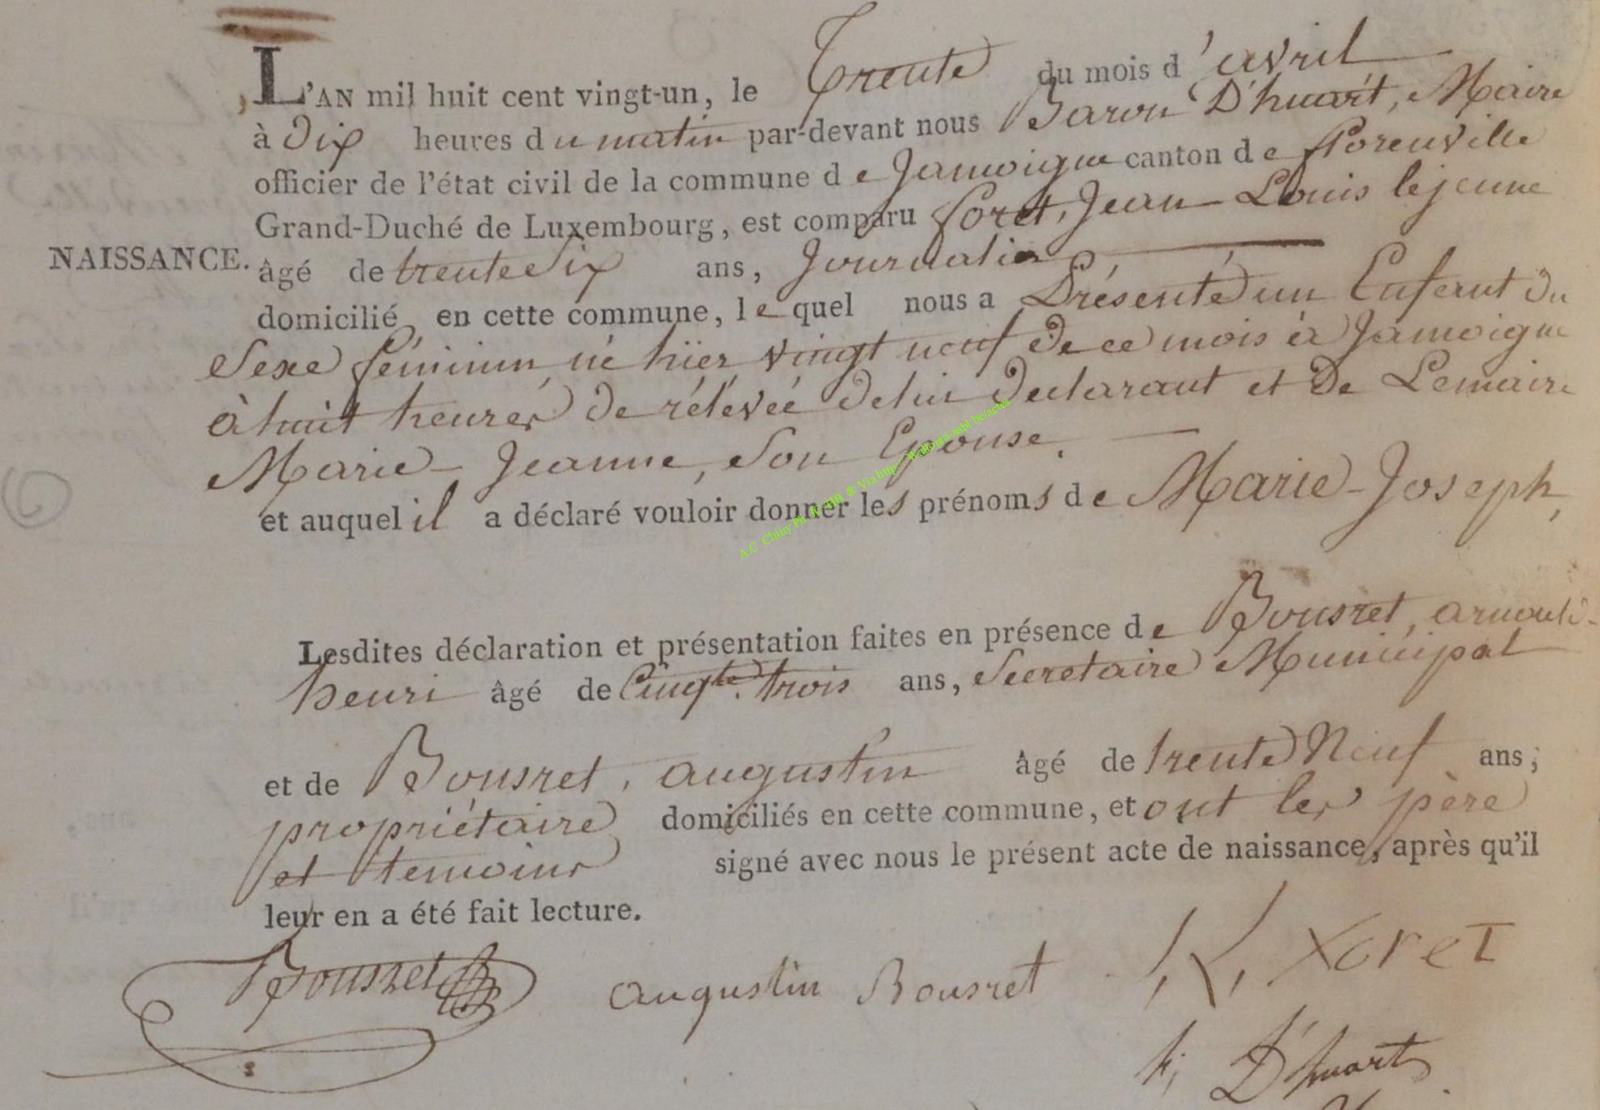 L'AN mil huit cent vingt-un, le Trente du mois d'avril
à dix heures du matin par-devant nous Baron D'huart, Maire
officier de l'état civil de la commune de Jamoigne canton de florenville
Grand-Duché de Luxembourg, est comparu foret, Jean Louis lejeune
NAISSANCE. âgé de trente Six ans, Journalier
domicilié en cette commune, lequel nous a Présenté un Enfant du
Sexe féminin, né hier vingt neuf de ce mois à Jamoigne
à huit heures de rélévée de lui declarant et de Lemaire
Marie-Jeanne, Son Epouse.
et auquel il a déclaré vouloir donner les prénoms de Marie-Joseph,
A.C. Chiny
Lesdites déclaration et présentation faites en présence de Bousret, arnould-
henri âgé de Cinqte. trois ans, Secretaire Municipal
et de Bousret, augustin âgé de trente Neuf ans,
propriétaire domiciliés en cette commune, et ont les père
et temoins signé avec nous le présent acte de naissance, après qu'il
leur en a été fait lecture.
Bousret augustin Bousret foret
D'huart